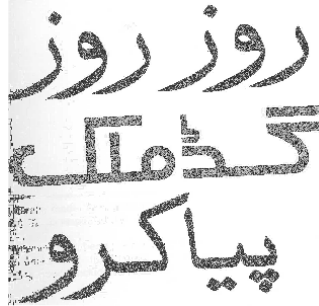 روز روز
گڈ ملک
پیا کرو